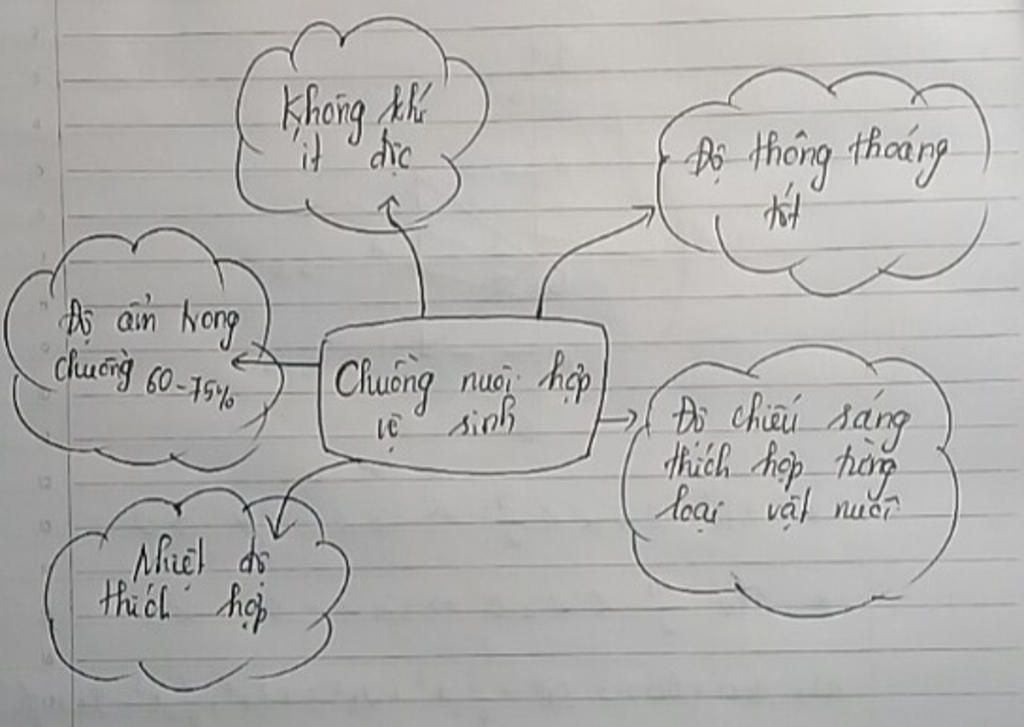 Không khí
ít độc
Độ thông thoáng
tốt
Độ ẩm trong
chuồng 60-75%
Chuồng nuôi hợp
vệ sinh
Độ chiếu sáng
thích hợp từng
loại vật nuôi
Nhiệt độ
thích hợp